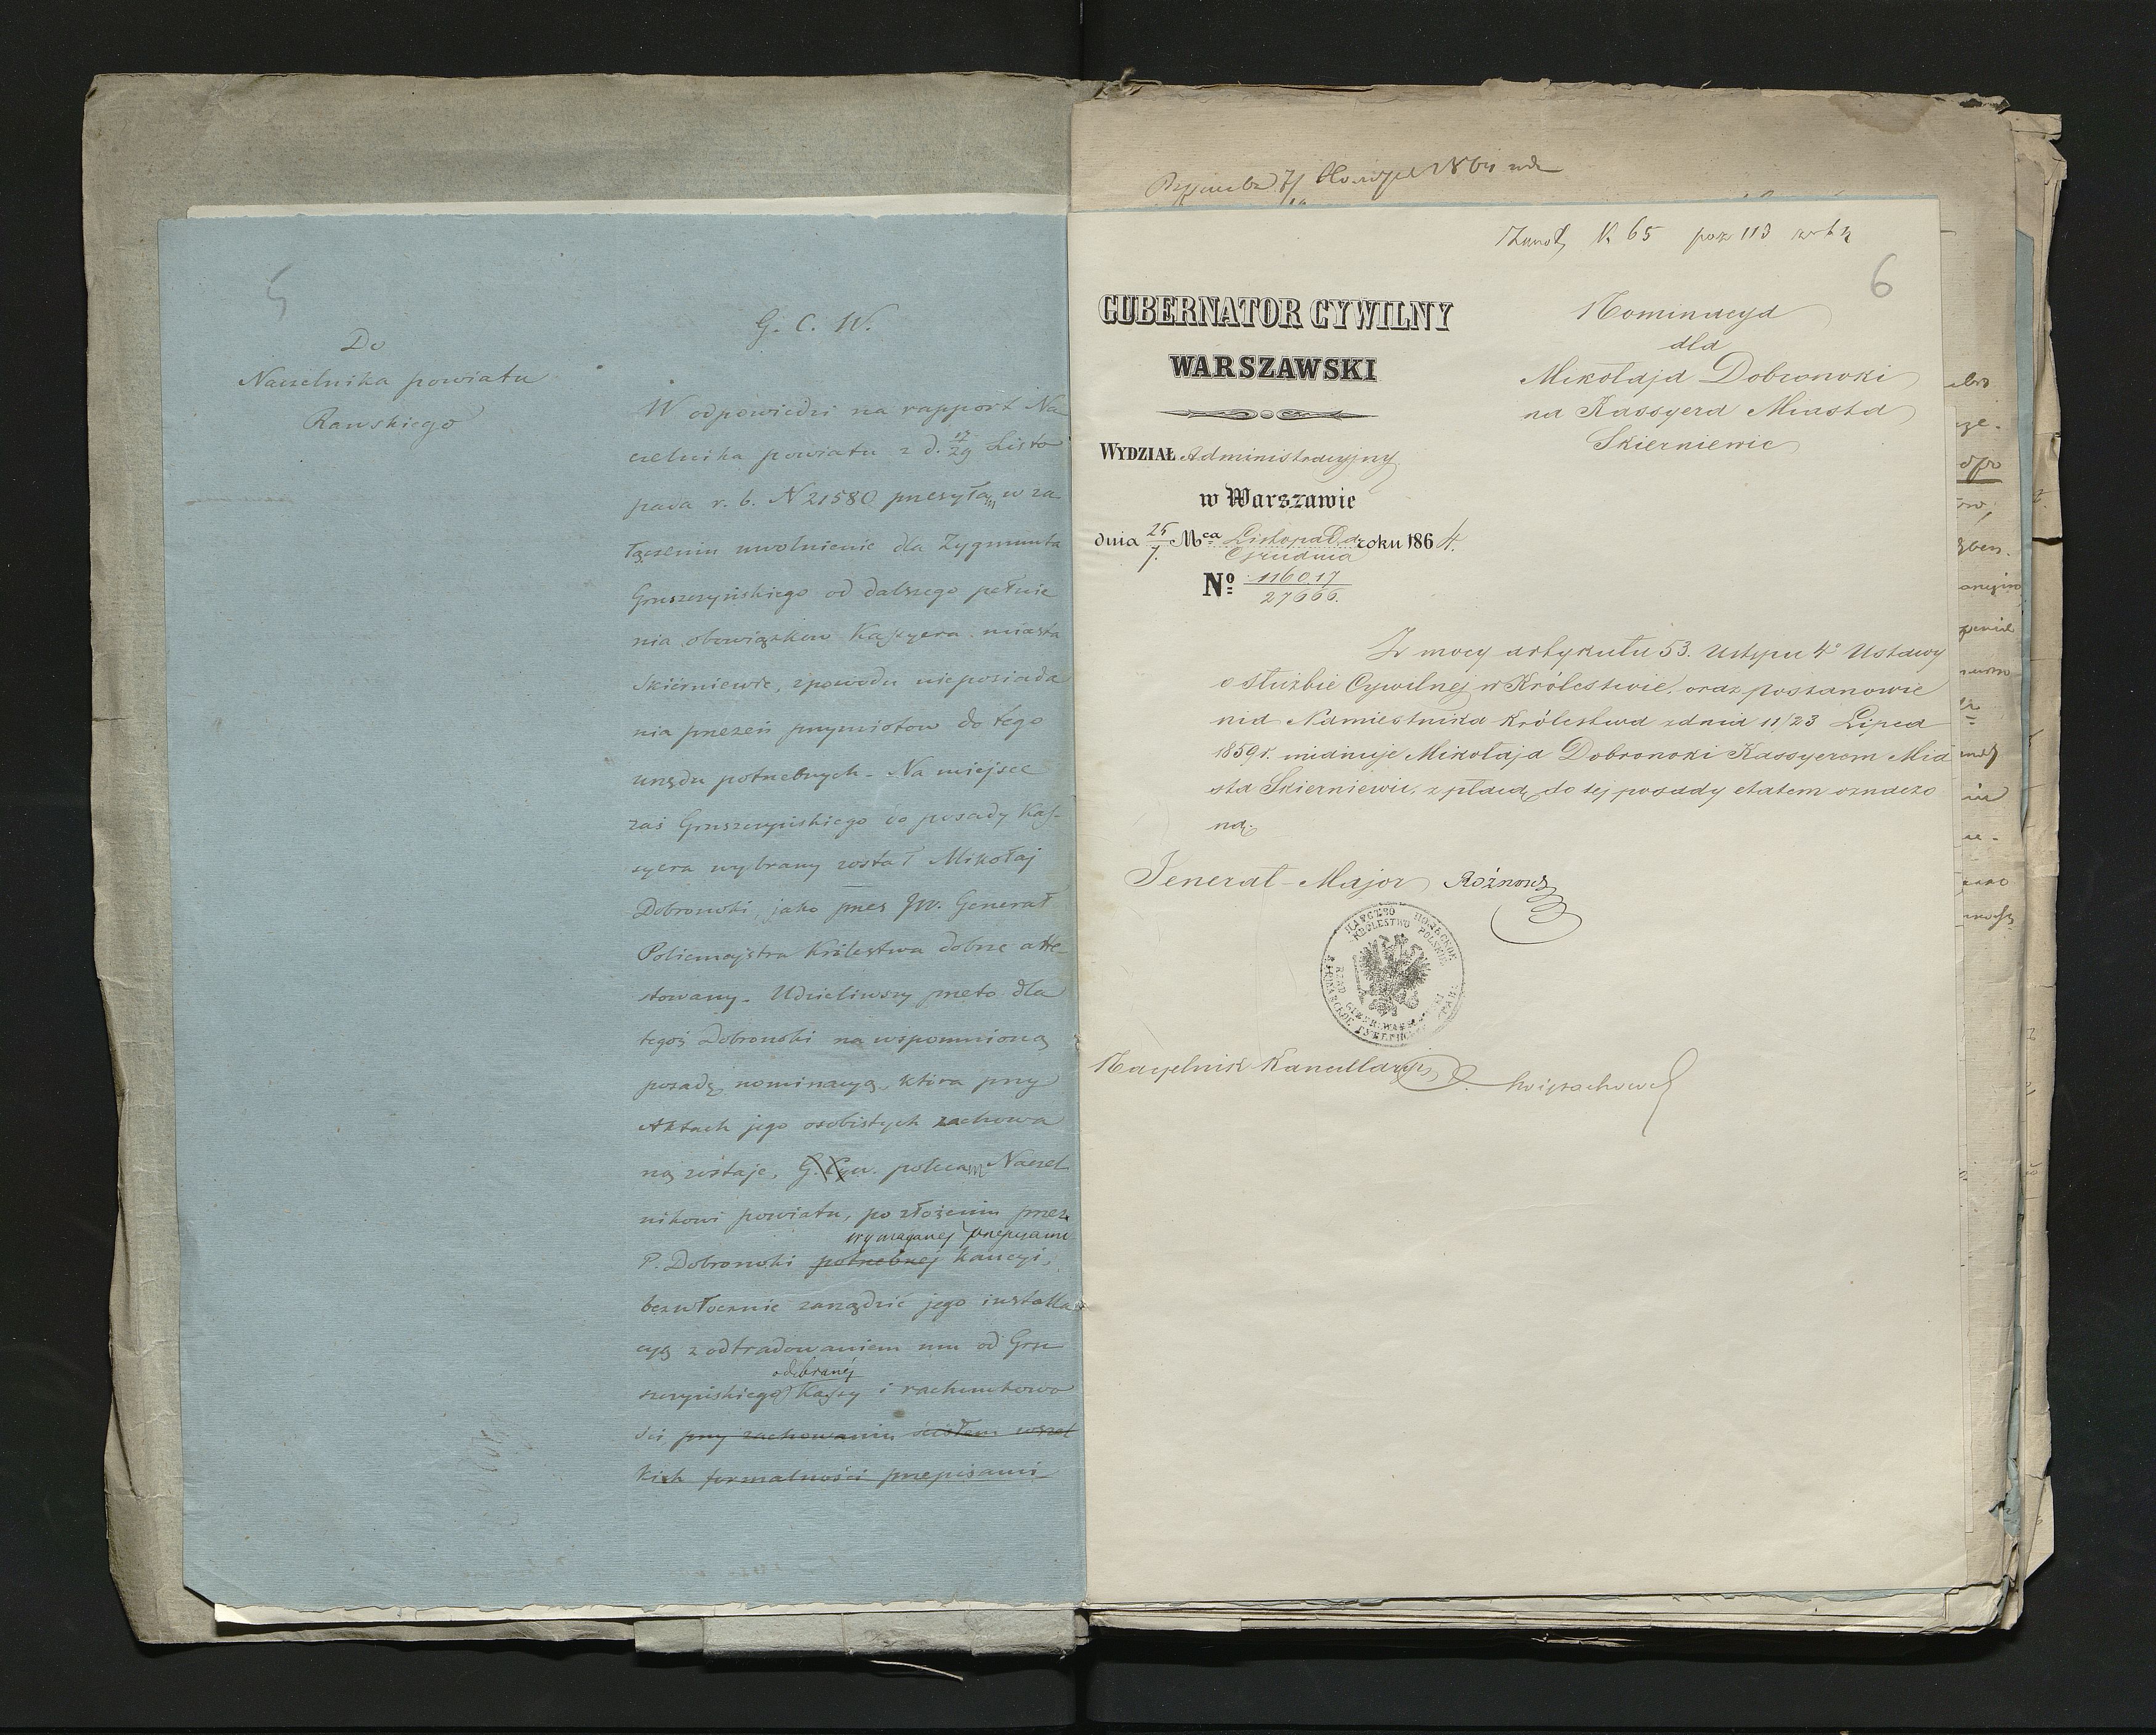 5
Do
Naczelnika powiatu
Rawskiego
G. C. W.
W odpowiedzi na rapport Na
czelnika powiatu z d. 17/29 Listo
pada r. b. N 21580 przesyłam w za
łączeniu uwolnienie dla Zygmunta
Gruszczyńskiego od dalszego pełnie
nia obowiązków Kassyera miasta
Skierniewic, z powodu nieposiada
nia przezeń przymiotów do tego
urzędu potrzebnych – Na miejsce
zaś Gruszczyńskiego do posady Kas-
syera wybrany został Mikołaj
Dobronoki, jako przez JW. Generał
Policmajstra Królestwa dobrze atte-
stowany – Udzieliwszy przeto dla
tegoż Dobronoki na wspomnioną
posadę nominacyą, która przy
Aktach jego osobistych zachowa
ną zostaje, G. C. W. polecam Naczel
nikowi powiatu, po złożeniu przez
wymaganej przepisami
P. Dobronoki potrzebnej kaucyi,
bezwłocznie zarządzić jego installa
cyą z odtradowaniem mu od Gru
odebranej
szczyńskiego Kassy i rachunkowo
ści przy zachowaniu ścisłem wszel
kich formalności przepisami
6
K 65 poz 113
GUBERNATOR CYWILNY
WARSZAWSKI
WYDZIAŁ Administracyjny
w Warszawie
dnia 25/7 Mca Listopada/Grudnia roku 1864.
No 1160.17/27666.
Nominacya
dla
Mikołaja Dobronoki
na Kassyera Miasta
Skierniewic
Z mocy artykułu 53. Ustępu 4o Ustawy
o służbie Cywilnej w Królestwie, oraz postanowie
nia Namiestnika Królestwa z dnia 11/23 Lipca
1859 r. mianuje Mikołaja Dobronoki Kassyerem Mia
sta Skierniewic, z płacą do tej posady etatem oznaczo
ną.
Jenerał-Major Rożnow
ЦАРСТВО ПОЛЬСКОЕ
KRÓLESTWO POLSKIE
RZĄD GUBER: WARSZAWSKI
Naczelnik Kancellaryi